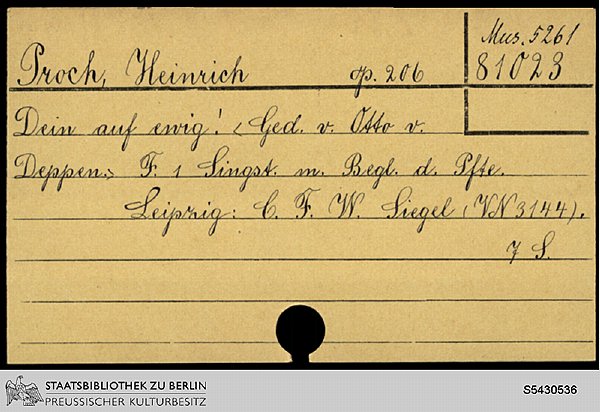 Mus. 5261
Proch, Heinrich op. 206 81023
Dein auf ewig! <Ged. v. Otto v.
Deppen.> F. 1 Singst. m. Begl. d. Pfte.
Leipzig: C. F. W. Siegel (VN 3144).
7 S.
STAATSBIBLIOTHEK ZU BERLIN
PREUSSISCHER KULTURBESITZ
S5430536